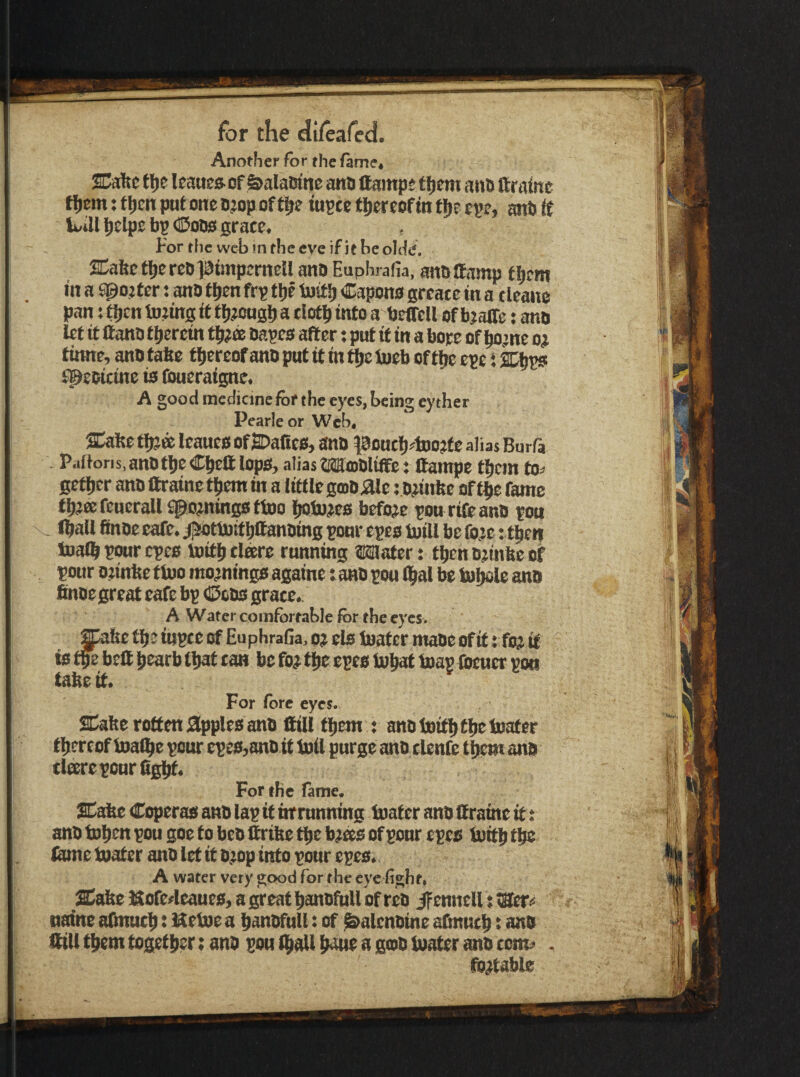 for the diſeaſed.
Another for the ſame.
Take the leaues of Saladine and ſtampe them and ſtraine
them: then put one drop of the iuyce thereof in the eye, and it
will helpe by Gods grace.
For the web in the eye if it be olde.
Take the red Pimpernell and Euphraſia, and ſtamp them
in a Morter: and then fry thē with Capons greace in a cleane
pan: then wring it through a cloth into a veſſell of braſſe: and
let it ſtand therein thrée dayes after: put it in a boxe of horne or
tinne, and take thereof and put it in the web of the eye: Thys
Medicine is ſoueraigne.
A good medicine for the eyes, being eyther
Pearle or Web.
Take thrée leaues of Daſies, and Pouch-worte alias Burſa
Paſtoris, and the Cheſt lops, alias Woodliſſe: ſtampe them to-
gether and ſtraine them in a little good Ale: drinke of the ſame
thrée ſeuerall Mornings two howres before you riſe and you
ſhall finde eaſe. Notwithſtanding your eyes will be ſore: then
waſh your eyes with cléere running Water: then drinke of
your drinke two mornings againe: and you ſhal be whole and
finde great eaſe by Gods grace.
A Water comfortable for the eyes.
Take the iuyce of Euphraſia, or els water made of it: for it
is the beſt hearb that can be for the eyes what way ſoeuer you
take it.
For ſore eyes.
Take rotten Apples and ſtill them: and with the water
thereof waſhe your eyes, and it wil purge and clenſe them and
cléere your ſight.
For the ſame.
Take Coperas and lay it in running water and ſtraine it:
and when you goe to bed ſtrike the brées of your eyes with the
ſame water and let it drop into your eyes.
A water very good for the eye ſight.
Take Roſe-leaues, a great handfull of red Fennell: Ver-
uaine aſmuch: Rewe a handfull: of Salendine aſmuch: and
ſtill them together: and you ſhall haue a good water and com-
fortable